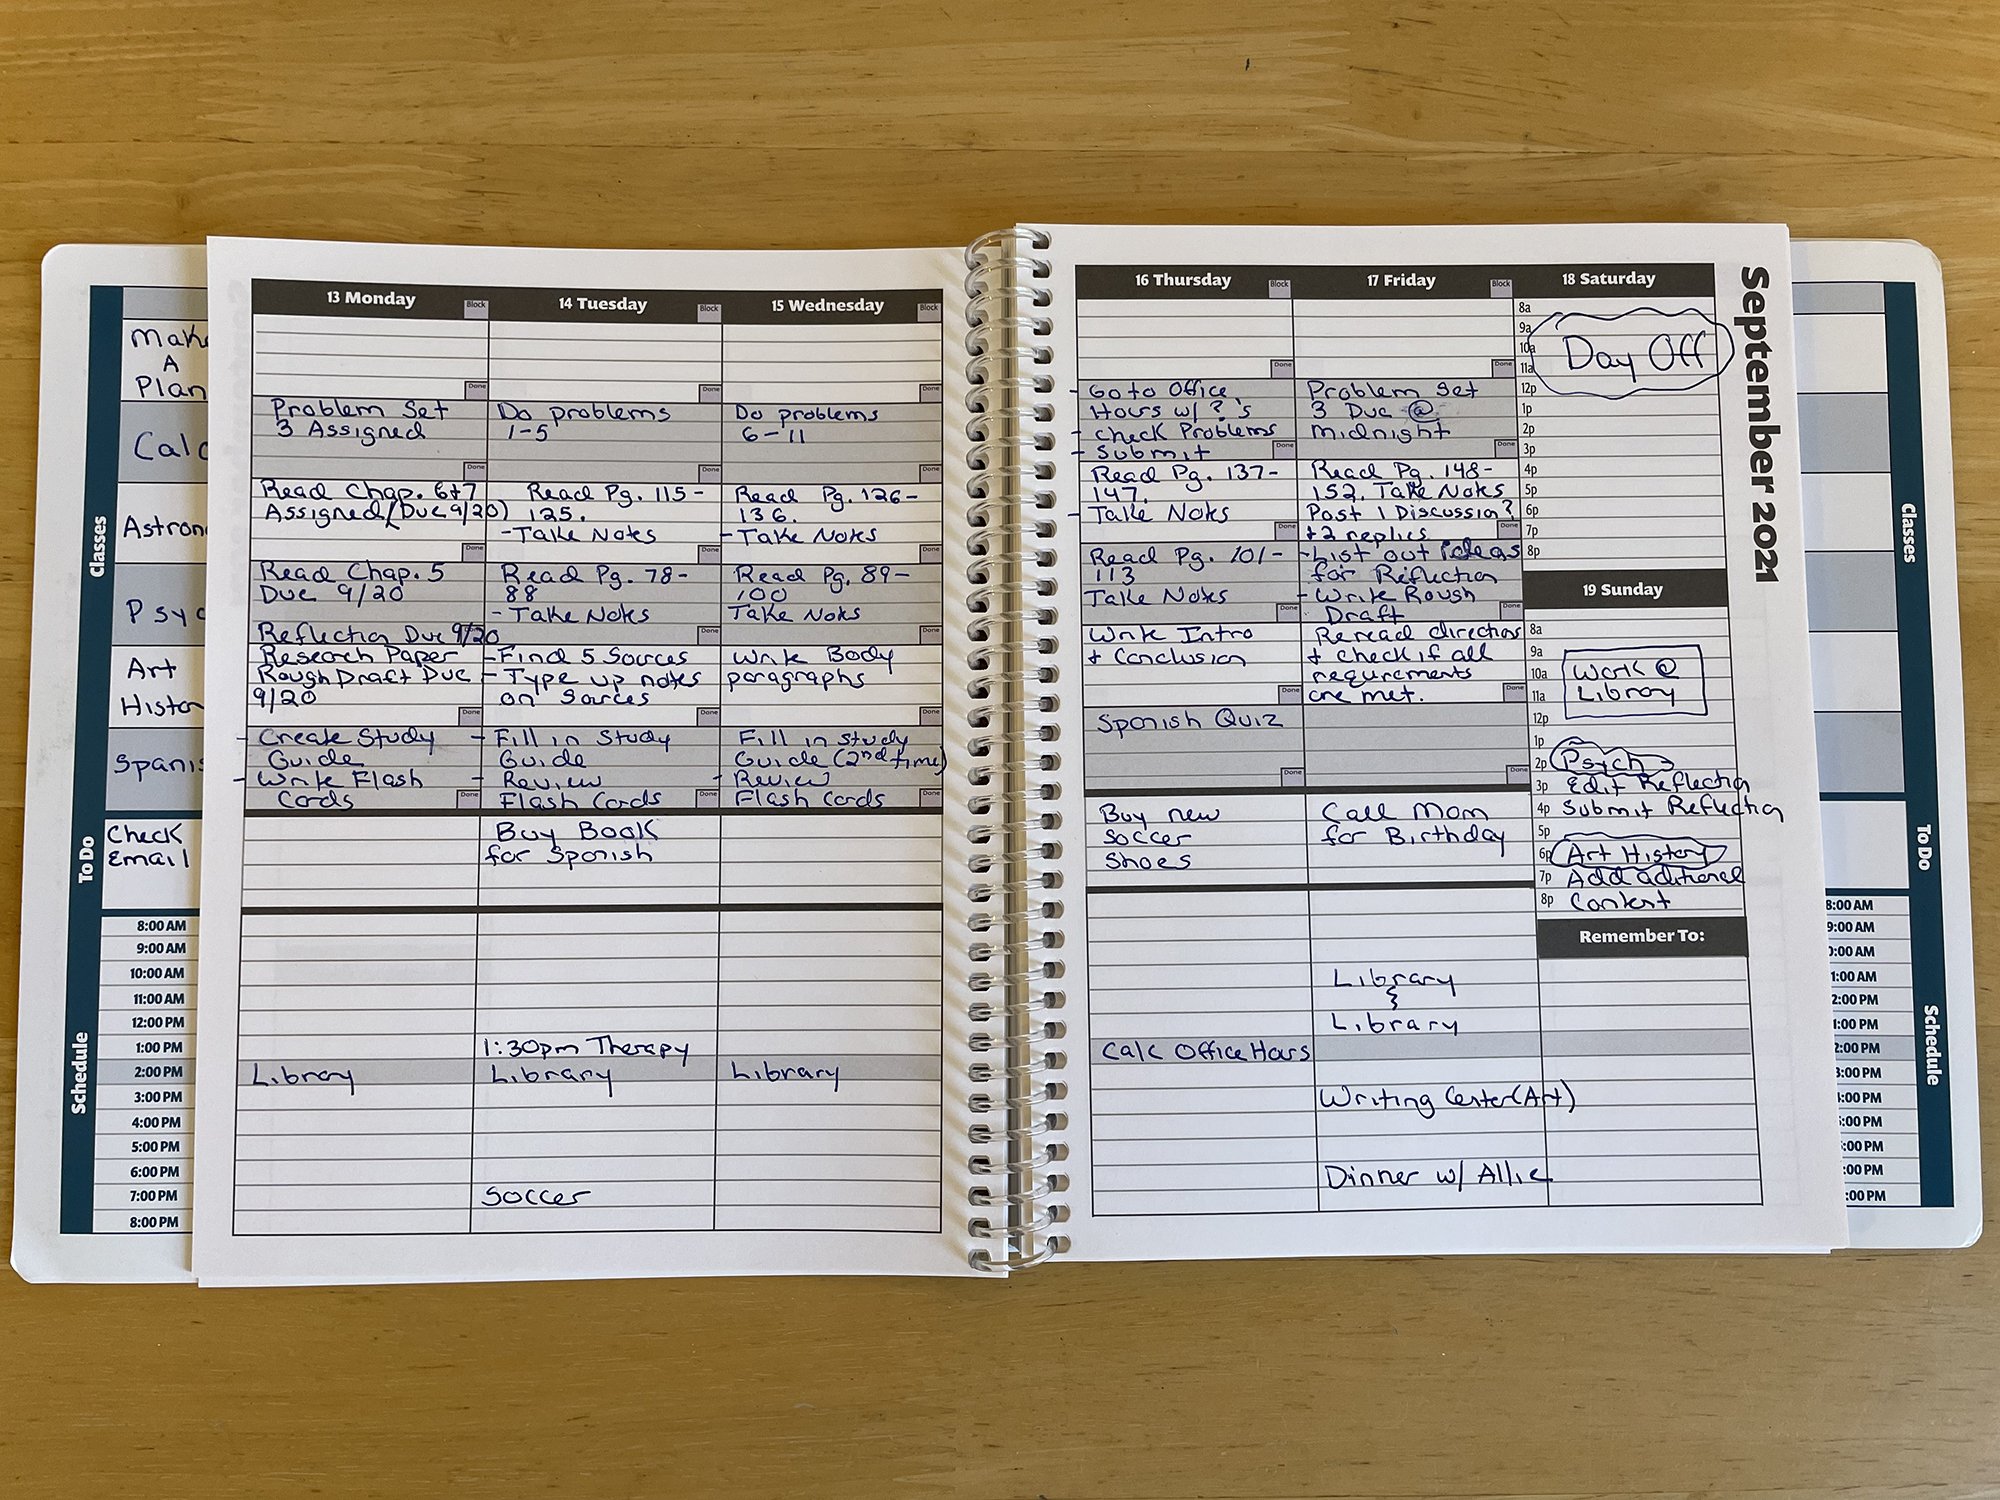 Classes
Make
A
Plan
Calc
Astron
Psyc
Art
Histor
Spanis
To Do
Check
Email
Schedule
8:00 AM
9:00 AM
10:00 AM
11:00 AM
12:00 PM
1:00 PM
2:00 PM
3:00 PM
4:00 PM
5:00 PM
6:00 PM
7:00 PM
8:00 PM
13 Monday
Block
Done
Problem Set
3 Assigned
Done
Read Chap. 6+7
Assigned (Due 9/20)
Done
Read Chap. 5
Due 9/20
Reflection Due 9/20
Research Paper
Rough Draft Due
9/20
Done
- Create Study
Guide
- Write Flash
Cards
Done
Library
14 Tuesday
Block
Done
Do problems
1-5
Done
Read Pg. 115-
125.
- Take Notes
Done
Read Pg. 78-
88
- Take Notes
Done
- Find 5 Sources
- Type up notes
on Sources
Done
- Fill in Study
Guide
- Review
Flash Cards
Done
Buy Book
for Spanish
1:30pm Therapy
Library
Soccer
15 Wednesday
Block
Done
Do problems
6-11
Done
Read Pg. 126-
136.
- Take Notes
Done
Read Pg. 89-
100
Take Notes
Done
Write Body
paragraphs
Done
Fill in study
Guide (2nd time)
- Review
Flash Cards
Done
Library
16 Thursday
Block
Done
- Go to Office
Hours w/ ?'s
- Check Problems
- Submit
Done
Read Pg. 137-
147.
- Take Notes
Done
Read Pg. 101-
113
Take Notes
Done
Write Intro
+ Conclusion
Done
Spanish Quiz
Done
Buy new
soccer
shoes
Calc Office Hours
17 Friday
Block
Done
Problem Set
3 Due @
midnight
Done
Read Pg. 148-
152. Take Notes
Post 1 Discussion?
+2 replies
- List out ideas
for Reflection
- Write Rough
Draft
Done
Reread directions
+ check if all
requirements
are met.
Done
Done
Call Mom
for Birthday
Library
Library
Writing Center (Art)
Dinner w/ Allie
18 Saturday
8a
9a
10a
11a
Day Off
12p
1p
2p
3p
4p
5p
6p
7p
8p
19 Sunday
8a
9a
10a
11a
Work @
Library
12p
1p
2p Psych
3p Edit Reflection
4p Submit Reflection
5p
6p Art History
7p Add aditional
8p Content
Remember To:
September 2021
Classes
To Do
Schedule
8:00 AM
9:00 AM
0:00 AM
1:00 AM
2:00 PM
1:00 PM
2:00 PM
3:00 PM
:00 PM
:00 PM
:00 PM
:00 PM
:00 PM